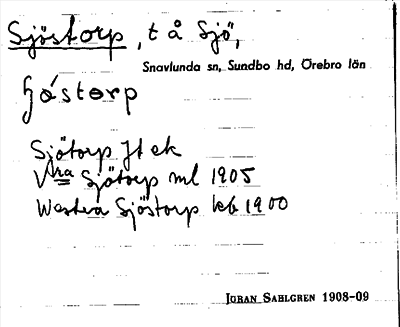 Sjöstorp, t å Sjö,
Snavlunda sn, Sundbo hd, Örebro län
Sjötorp Jt ek
Vtra Sjötorp ml 1905
Westra Sjöstorp kb 1900
JORAN SAHLGREN 1908-09